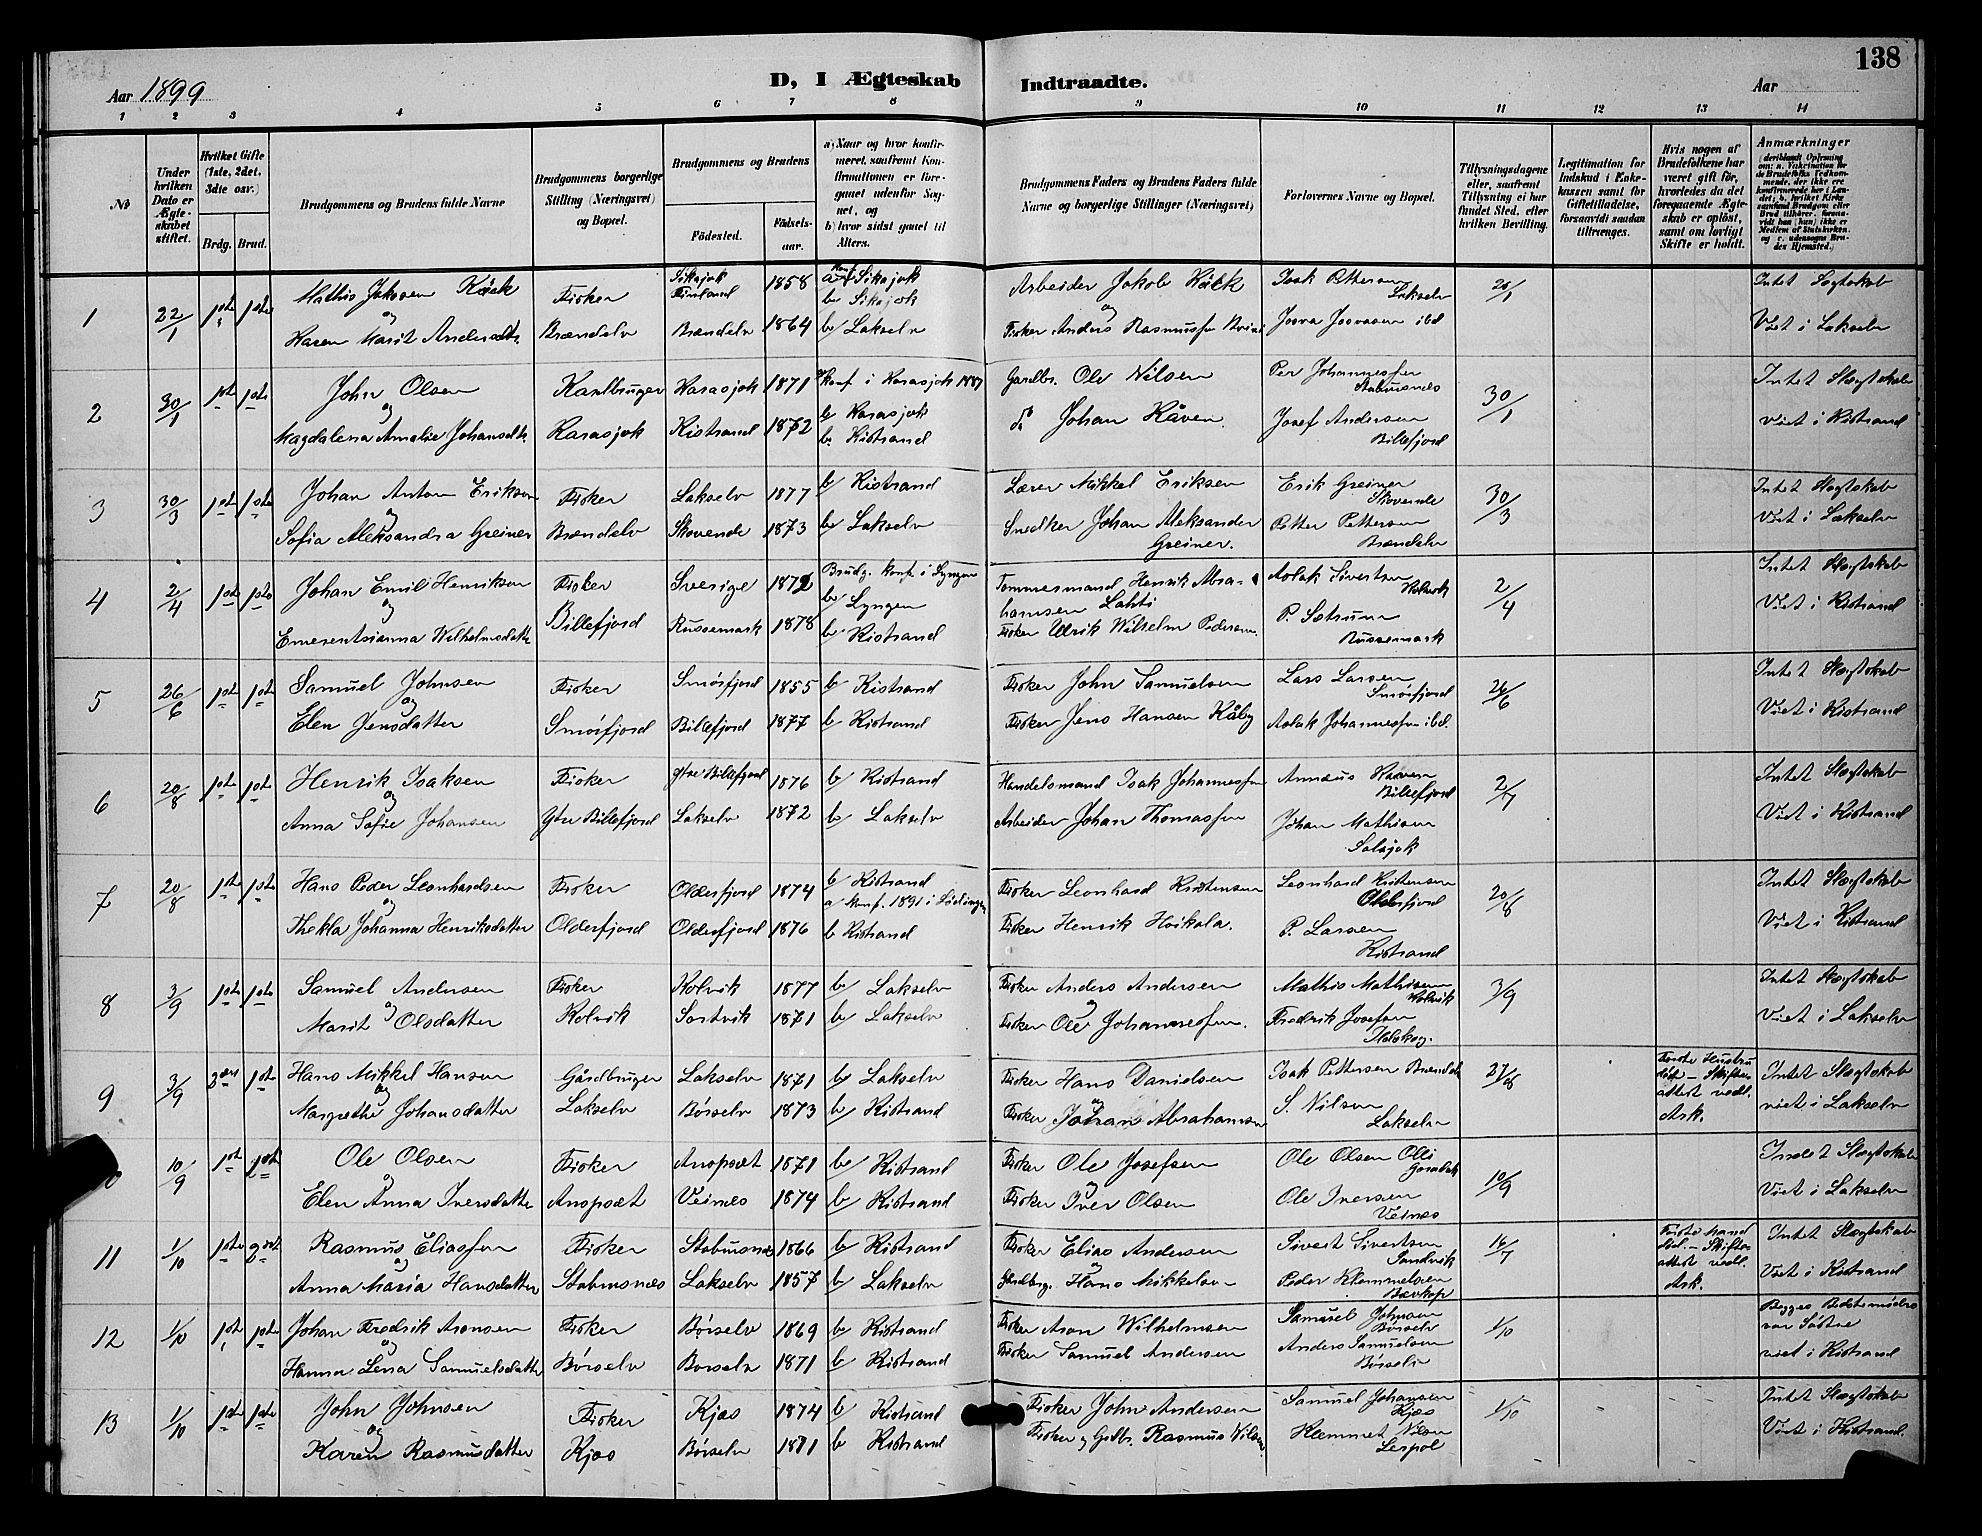 138
D, I Ægteskab Indtraadte.
Aar 1899
Aar
1 2 3 4 5 6 7 8 9 10 11 12 13 14
No
Under hvilken Dato er Ægteskabet stiftet.
Hvilket Gifte (1ste, 2det, 3die osv.)
Brdg. Brud.
Brudgommens og Brudens fulde Navne
Brudgommens borgerlige Stilling (Næringsvei) og Bopæl.
Brudgommens og Brudens
Födested.
Födselsaar.
a) Naar og hvor konfirmeret, saafremt Konfirmationen er foregaaet udenfor Sognet, og
b) hvor sidst gaaet til Alters.
Brudgommens Faders og Brudens Faders fulde Navne og borgerlige Stillinger (Næringsvei)
Forlovernes Navne og Bopæl.
Tillysningsdagene eller, saafremt Tillysning ei har fundet Sted, efter hvilken Bevilling.
Legitimation for Indskud i Enkekassen samt for Giftetilladelse, forsaavidt saadan tiltrænges.
Hvis nogen af Brudefolkene har været gift för, hvorledes da det foregaaende Ægteskab er oplöst, samt om lovligt Skifte er holdt.
Anmærkninger
1 22/1 1ste 1ste Mathis Jakosen Käck Fisker Sikajok Finland 1858 a konf. Sikajok b Sikajok Arbeider Jakob Käck Isak Pettersen Lakselv Intet Slægtskab
og Haren Marit Andersdtr. Brændelv Brændelv 1864 b/ Lakselv Fisker Anders Rasmussen Josva Josvasen ibd Viet i Lakselv
2 30/1 1ste 1ste John Olsen Karasjok 1871 Konf i Karasjok 1887 b Karasjok Gaardbr. Ole Nilsen Per Johannessen Stabursnes 30/1 Intet Slægtskab
og Magdalena Amalie Johansdtr. Karasjok Kistrand 1872 b. Kistrand do Johan Kåven Josef Andersen Billefjord viet i Kistrand
3 30/3 1ste 1ste Johan Anton Eriksen Fisker Lakselv 1877 b/ Kistrand Lærer Mikkel Eriksen Erik Greiner Skovende 30/3 Intet Slægtskab
og Sofia Aleksandra Greiner Brændelv Skovende 1873 b/ Lakselv Snedker Johan Aleksander Greiner. Petter Pettersen Brændelv Viet i Lakselv
4 2/4 1ste 1ste Johan Emil Henriksen Fisker Sverige 1872 Brudg. konf. i Lyngen b/ Lyngen Tømmermand Henrik Abrahamsen Lahti Aslak Sivertsen 2/4 Intet Slægtskab
og Emerentsianna Wilhelmsdatter Billefjord Russemark 1878 b/ Kistrand Fisker Ulrik Wilhelm Pedersen. Russemark Viet i Kistrand
5 26/6 1ste 1ste Samuel Johnsen Fisker Smørfjord 1855 b/ Kistrand Fisker John Samuelsen Lars Larsen Smørfjord 26/6 Intet Slægtskab
og Elen Jensdatter Smørfjord Billefjord 1877 b/ Kistrand Fisker Jens Hansen Käby Aslak Johannessen ibd. Viet i Kistrand
6 20/8 1ste 1ste Henrik Isaksen Fisker Ytre Billefjord 1876 b/ Kistrand Handelsmand Isak Johannessen Billefjord 2/7 Intet Slægtskab
og Anna Sofie Johansen Ytre Billefjord Lakselv 1872 b/ Lakselv Arbeider Johan Thomassen Johan Mathisen Viet i Kistrand
7 20/8 1ste 1ste Hans Peder Leonhardsen Fisker Olderfjord 1874 b/ Kistrand Fisker Leonhard Kristensen Leonhard Kristensen Olderfjord 20/8 Intet Slægtskab
og Thekla Johanna Henriksdatter Olderfjord Olderfjord 1876 a Konf. 1891 i Lødingen b Kistrand Fisker Henrik Hoikala. P. Larsen Kistrand Viet i Kistrand
8 3/9 1ste 1ste Samuel Andersen Fisker Kolvik 1877 b/ Lakselv Fisker Anders Andersen Mathis Mathisen Kolvik 3/9 Intet Slægtskab
og Marit Olsdatter Kolvik Sortvik 1871 b/ Lakselv og Fisker Ole Johannessen. Fredrik Josefsen Viet i Lakselv
9 3/9 1ste Hans Mikkel Hansen Gårdbruger Lakselv 1871 b/ Lakselv Fisker Hans Danielsen Isak Pettersen Brændelv 27/8 Første Hustru død - Skifteattest vedl. Ask. Intet Slægtskab
og Margrethe Johansdatter Lakselv Børselv 1873 b/ Kistrand og Fisker Johan Abrahamsen S. Nilsen Lakselv viet i Lakselv
10/9 1ste Ole Olsen Fisker Anopsæt 1871 b/ Kistrand Fisker Ole Josefsen Ole Olsen Olli 10/9 Intet Slægtskab
Elen Anna Iversdatter Anopsæt Veines 1874 b/ Kistrand og Fisker Iver Olsen Ole Iversen Veines Viet i Lakselv
11 1/10 1ste Rasmus Eliassen Fisker Stabursnes 1866 b/ Kistrand Fisker Elias Andersen Sivert Sivertsen Sandvik 16/7 Første Mand død. - Skifteattest vedl. Ask. Intet Slægtskab
og Anna Maria Hansdatter Stabursnes Lakselv 1857 b/ Lakselv og Gårdbrg. Hans Mikkelsen Peder Klemmetsen Viet i Kistrand
12 1/10 1ste 1ste Johan Fredrik Aronsen Fisker Børselv 1869 b/ Kistrand Fisker Aron Wilhelmsen Samuel Johnsen Børselv 1/10 Begges Bedstemødre var Søstre
og Hanna Lena Samuelsdatter Børselv Børselv 1871 b/ Kistrand Fisker Samuel Andersen Anders Samuelsen Børselv viet i Kistrand
13 1/10 1ste 1ste John Johnsen Fisker Kjæs 1874 b/ Kistrand Fisker John Andersen Samuel Johansen Kjæs 1/10 Intet Slægtskab
og Karen Rasmusdatter Kjæs Børselv 1871 b Kistrand Fisker og Gdbr. Rasmus Nilsen Klemmet Nilsen Leirpol Viet i Kistrand.